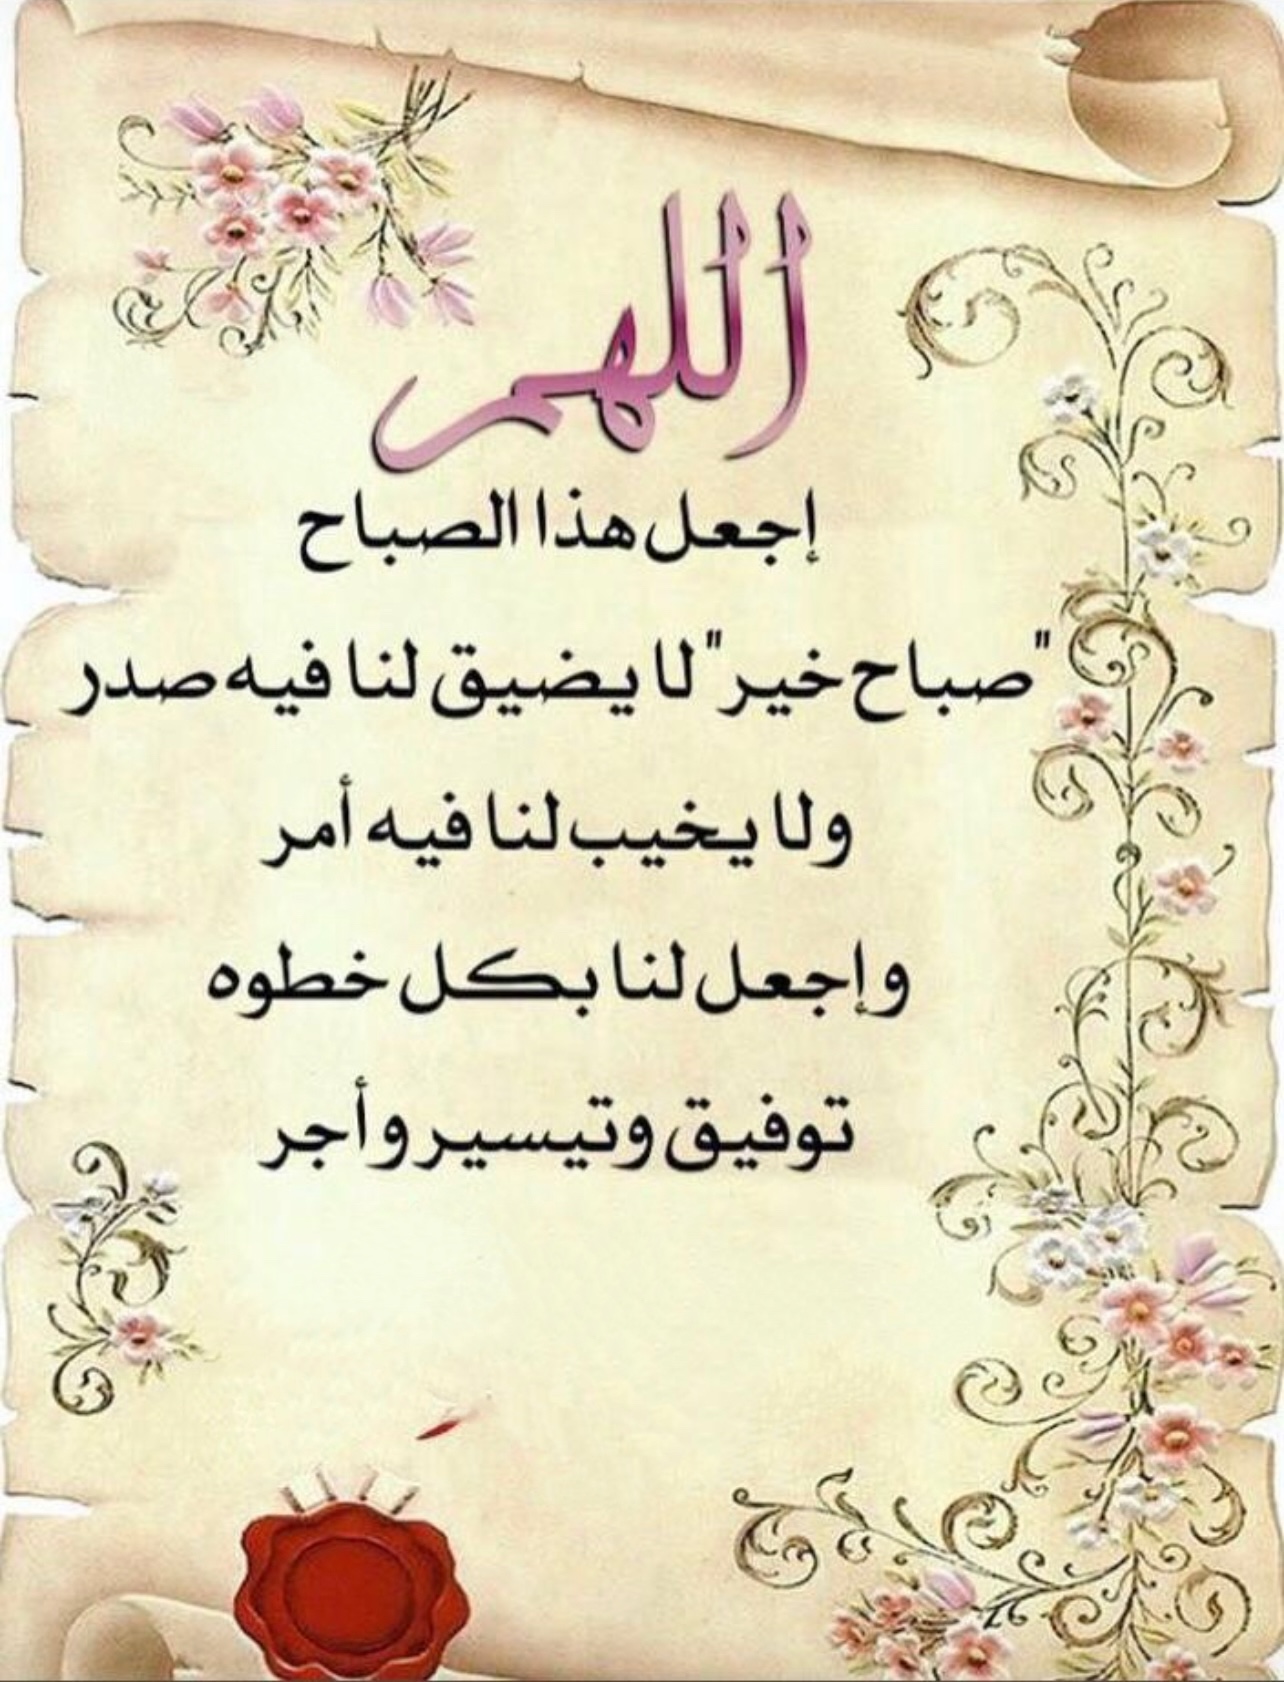 اللهم
إجعل هذا الصباح
"صباح خير" لا يضيق لنا فيه صدر
ولا يخيب لنا فيه أمر
وإجعل لنا بكل خطوه
توفيق وتيسير وأجر